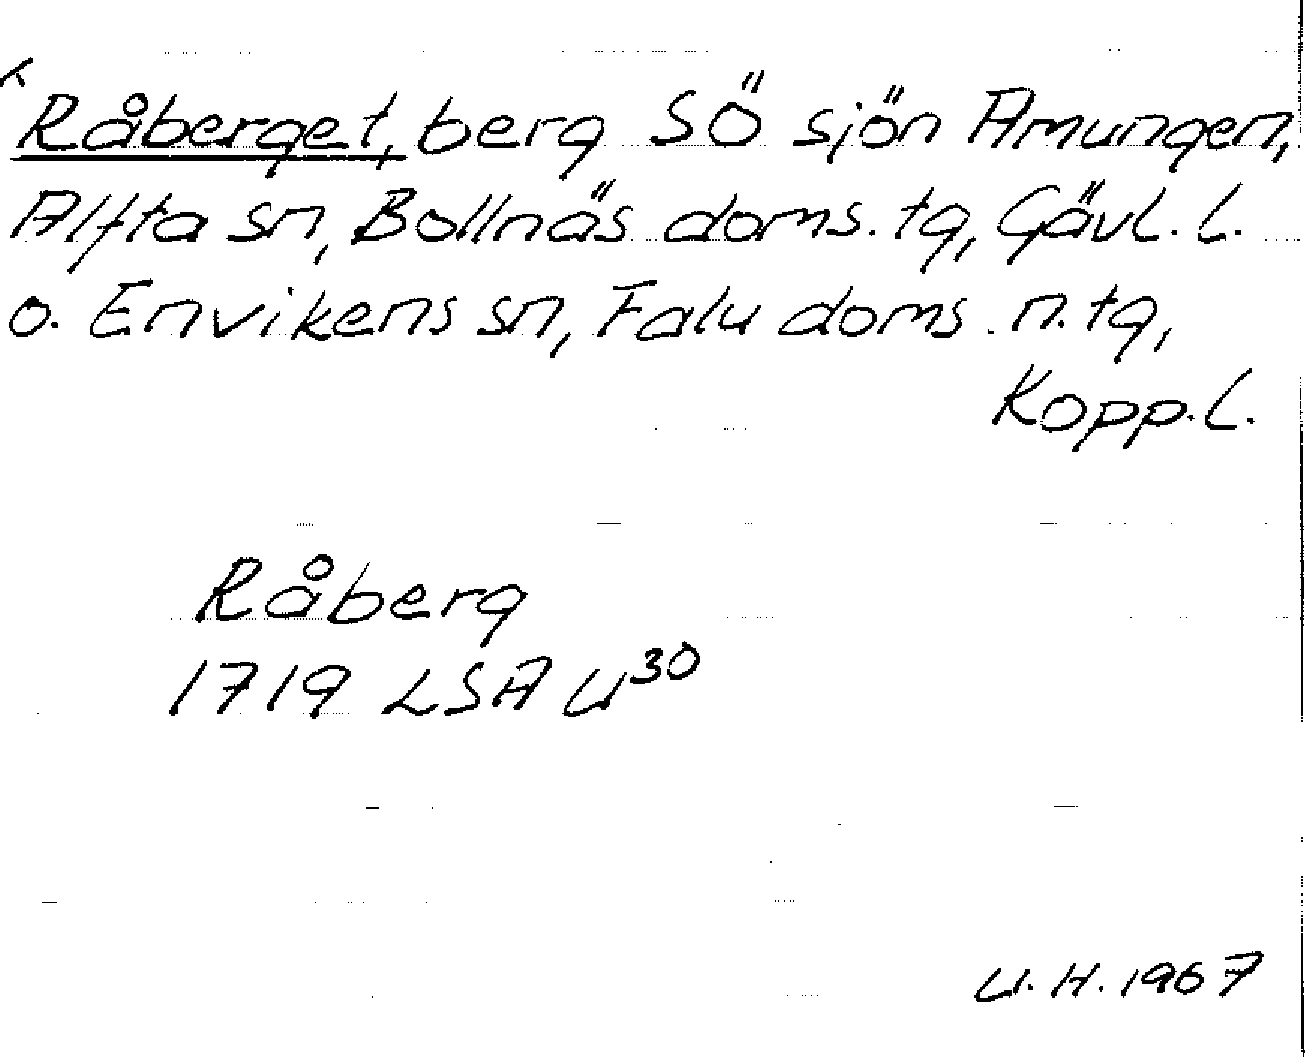 Råberget, berg SÖ sjön Amungen,
Alfta sn, Bollnäs doms. tg, Gävl. l.
o. Envikens sn, Falu doms. n. tg,
Kopp. l.
Råberg
1719 LSA U³⁰
U. H. 1967